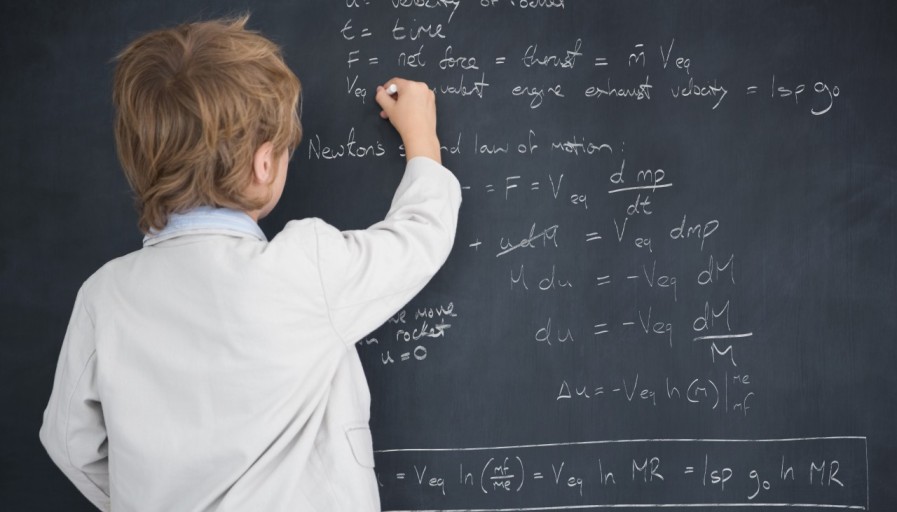 u = velocity of rocket
t = time
F = net force = thrust = ṁ Veq
Veq valent engine exhaust velocity = Isp g₀
Newton's s nd law of motion:
- = F = Veq d mp / dt
+ udM = Veq dmp
M du = -Veq dM
du = -Veq dM / M
we move
in rocket
u = 0
Δu = -Veq ln (m) | me mf
= Veq ln (mf / me) = Veq ln MR = Isp g₀ ln MR